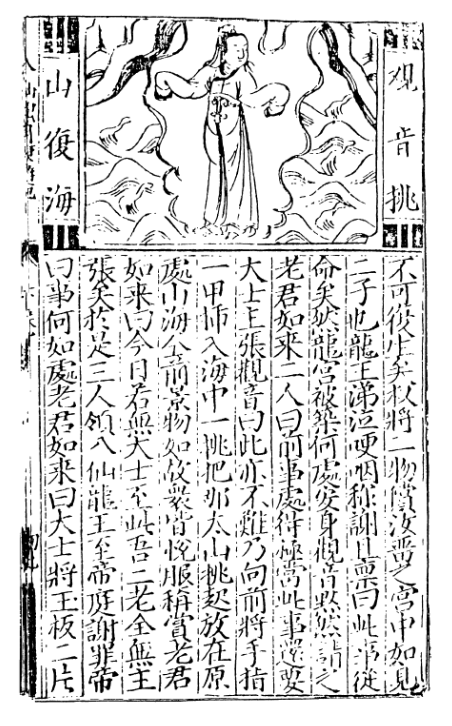 观音挑
山復海
不可復生矣权將二物償汝置之宮中如見
二子也龍王涕泣哽咽称謝且禀曰此事從
命矣然龍宮被築何處安身觀音默然請之
老君如来二人曰前事處得極當此事還要
大士主張觀音曰此亦不難乃向前將手指
一甲㧊入海中一挑把那太山挑起放在原
處山海仝前景物如故衆皆悅服称賞老君
如来曰今日若無大士至此吾二老全無主
張矣於是三人領八仙龍王至帝庭謝罪帝
曰事何如處老君如来曰大士將玉板二片